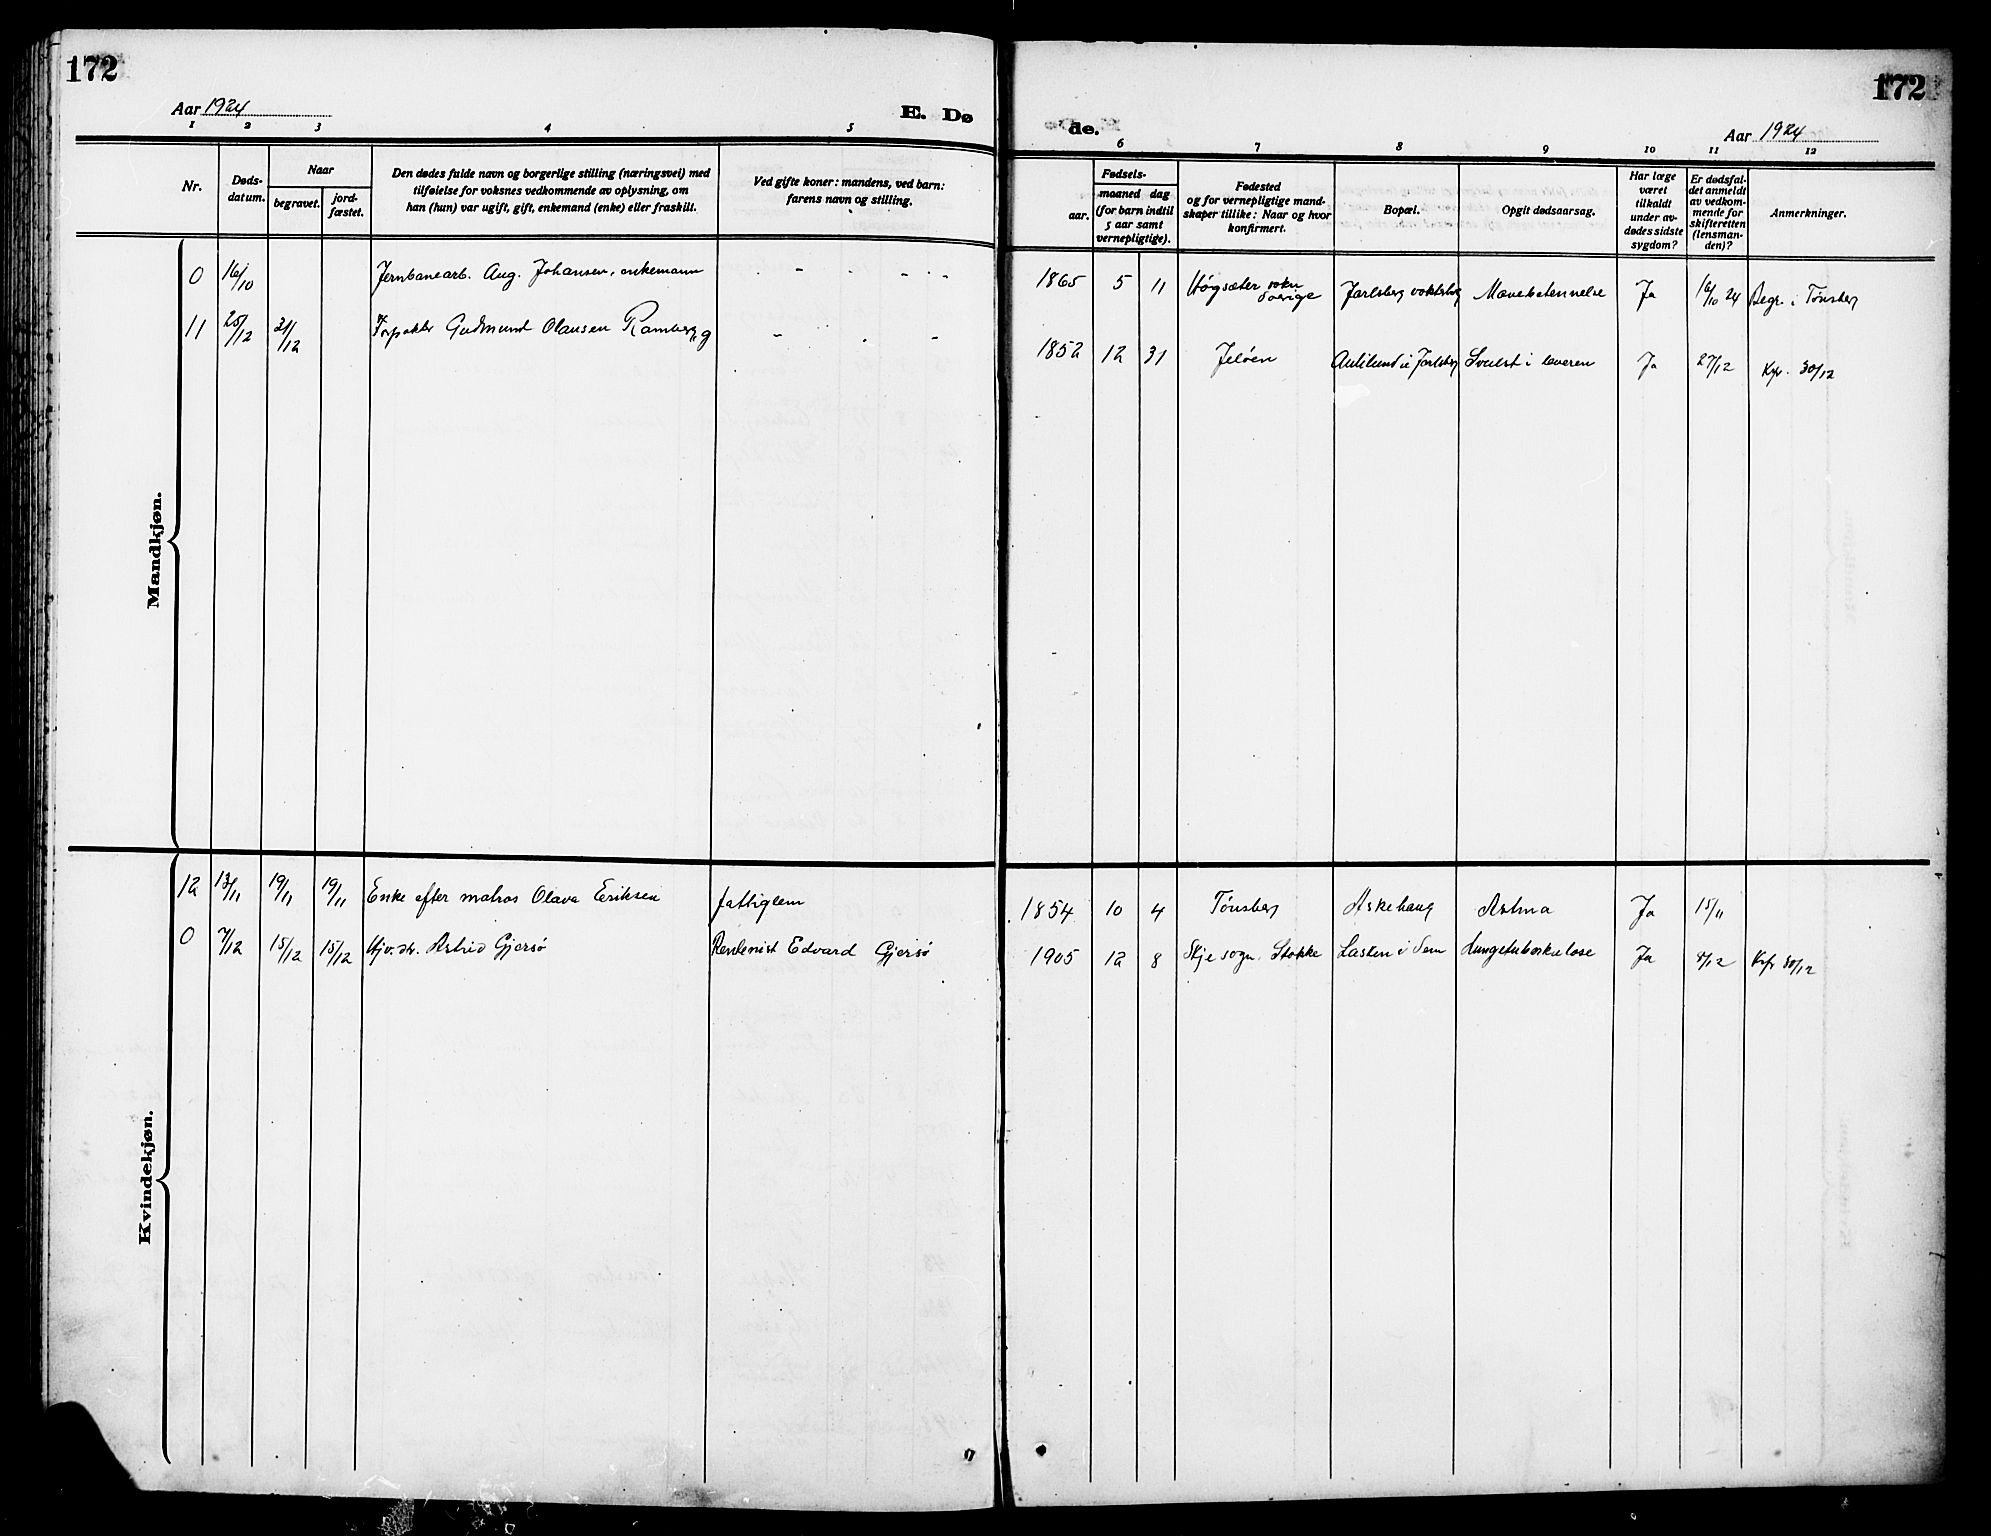 172
172
Aar 1924
E. Dø
de.
Aar 1924
1 2 3 4 5 6 7 8 9 10 11 12
Nr.
Døds-
datum.
Naar
begravet.
jord-
fæstet.
Den dødes fulde navn og borgerlige stilling (næringsvei) med
tilføielse for voksnes vedkommende av oplysning, om
han (hun) var ugift, gift, enkemand (enke) eller fraskilt.
Ved gifte koner: mandens, ved barn:
farens navn og stilling.
Fødsels-
aar.
maaned dag
(for barn indtil
5 aar samt
vernepligtige).
Fødested
og for vernepligtige mand-
skaper tillike: Naar og hvor
konfirmert.
Bopæl.
Opgit dødsaarsag.
Har læge
været
tilkaldt
under av-
dødes sidste
sygdom?
Er dødsfal-
det anmeldt
av vedkom-
mende for
skifteretten
(lensman-
den)?
Anmerkninger.
Mandkjøn.
0 16/10 Jernbanearb. Aug. Johansen, enkemann - - - - 1865 5 11 Högsæter sokn Sverige Jarlsberg Mavebetennelse Ja 16/10 24 Begr. i Tønsberg
11 25/12 31/12 Gudmund Olansen Ramberg - - 1852 12 31 Jeløen Aulilund i Jarlsberg Svulst i leveren Ja 27/12 Kfr. 30/12
Kvindekjøn.
12 13/11 19/11 19/11 Enke efter matros Olava Eriksen fattiglem 1854 10 4 Tönsberg Askehaug Astma Ja 15/11
0 7/12 15/12 15/12 Hjv. dtr. Astrid Gjersö Rentenist Edvard Gjersö 1905 12 8 Skje sogn. Stokke Lasken i Sem Lungetuberkulose Ja 8/12 Kfr 30/12